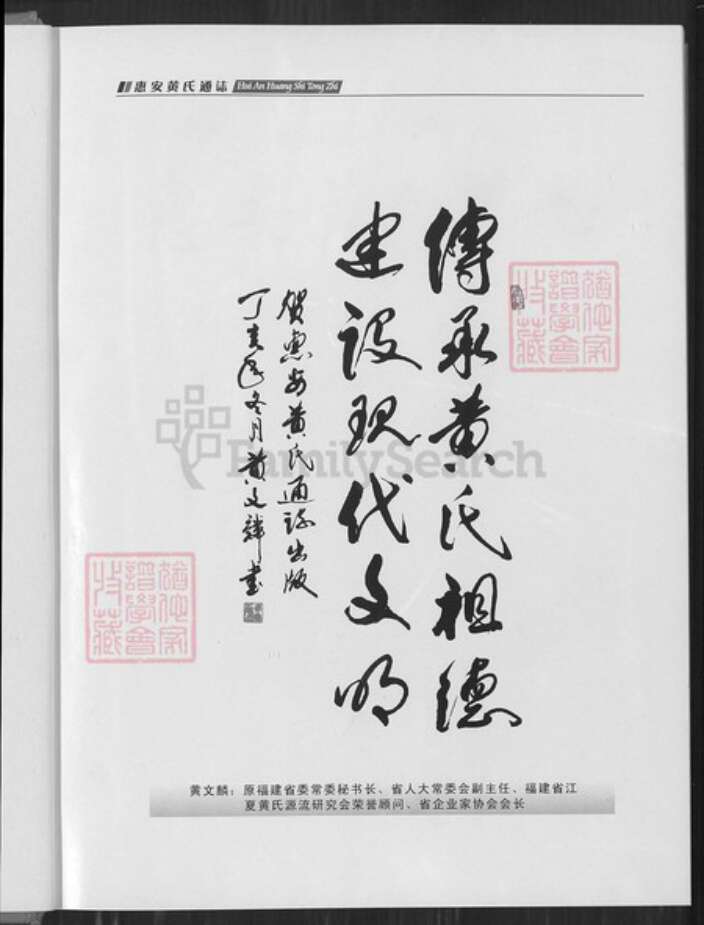 惠安黄氏通誌 Hui An Huang Shi Tong Zhi
傳承黄氏祖德
建设现代文明
贺惠安黄氏通誌出版
丁亥年冬月黄文麟書
FamilySearch
黄文麟：原福建省委常委秘书长、省人大常委会副主任、福建省江
夏黄氏源流研究会荣誉顾问、省企业家协会会长